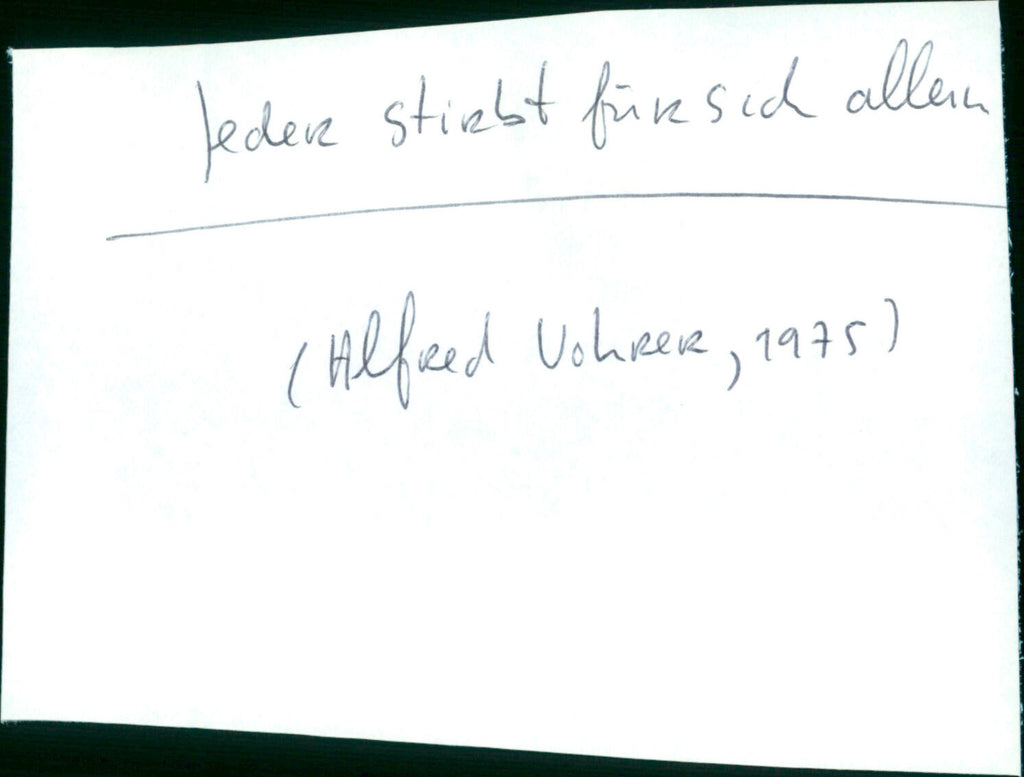 Jeder stirbt für sich allein
(Alfred Vohrer, 1975)